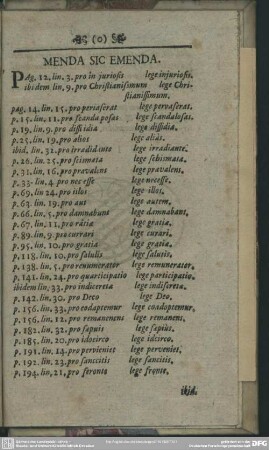 (0)
MENDA SIC EMENDA.
PAg. 12. lin. 3. pro in juriosis lege injuriosis.
ibidem lin. 9. pro Christianisimum lege Christianissimum.
pag. 14. lin. 15. pro periaserat lege pervaserat.
p. 15. lin. 11. pro scanda posas lege scandalosas.
p. 19. lin. 9. pro dissidia lege dissidia.
p. 25. lin. 19. pro alios lege aliàs.
ibid. lin. 31. pro irradid inte lege irradiante.
p. 26. lin. 25. pro scismata lege schismata.
p. 31. lin. 16. pro pravalens lege pravalent.
p. 33. lin. 4. pro nec esse lege necesse.
p. 69. lin 24. pro illus lege illos.
p. 63. lin. 19. pro aut lege autem.
p. 66. lin. 5. pro damnabunt lege damnabant.
p. 67. lin. 11. pro ratia lege gratia.
p. 89. lin. 9. pro currari lege curari.
p. 95. lin. 10. pro gratia lege gratiæ.
p. 118. lin. 10. pro salulis lege salutis.
p. 138. lin. 5. pro renumerator lege remunerator.
p. 141. lin. 24. pro quarticipatio lege participatio.
ibidem lin. 33. pro indicreta lege indiscreta.
p. 142. lin. 30. pro Deco lege Deo.
p. 156. lin. 33. pro eodaptemur lege coadoptemur.
p. 156. lin. 12. pro remanenens lege remanens.
p. 182. lin. 32. pro sapuis lege sapius.
p. 185. lin. 20. pro idocirco lege idcirco.
p. 191. lin. 14. pro pervieniet lege perveniet.
p. 192. lin. 23. pro sanccitis lege sancitis.
p. 194. lin. 21. pro feronte lege fronte.
ibid.